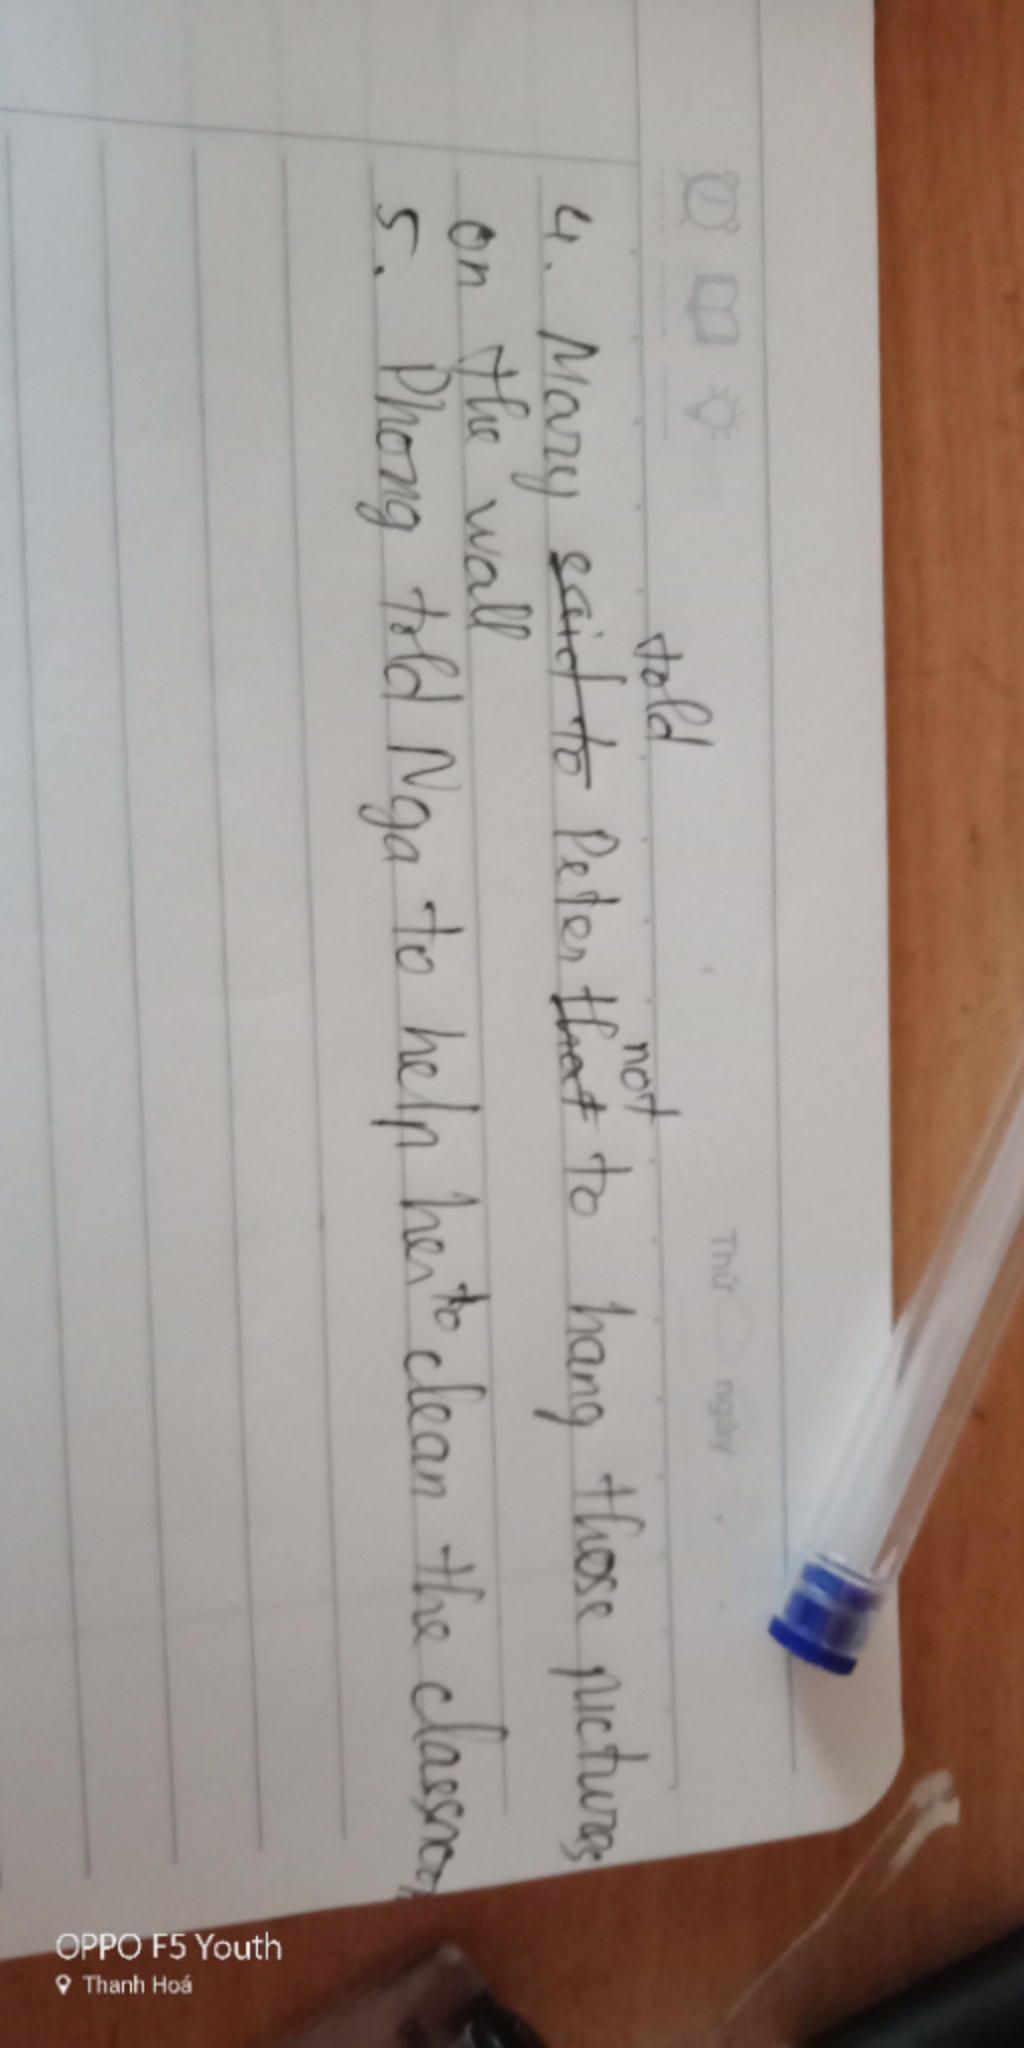 Thứ ngày
told not
4. Mary said to Peter that to hang those pictures
on the wall
5. Phong told Nga to help her to clean the classroom
OPPO F5 Youth
Thanh Hoá